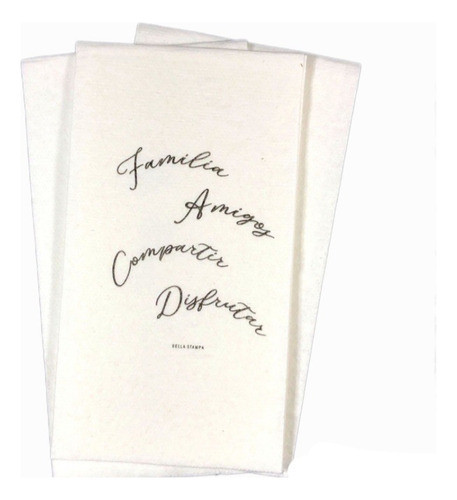 Familia
Amigos
Compartir
Disfrutar
BELLA STAMPA